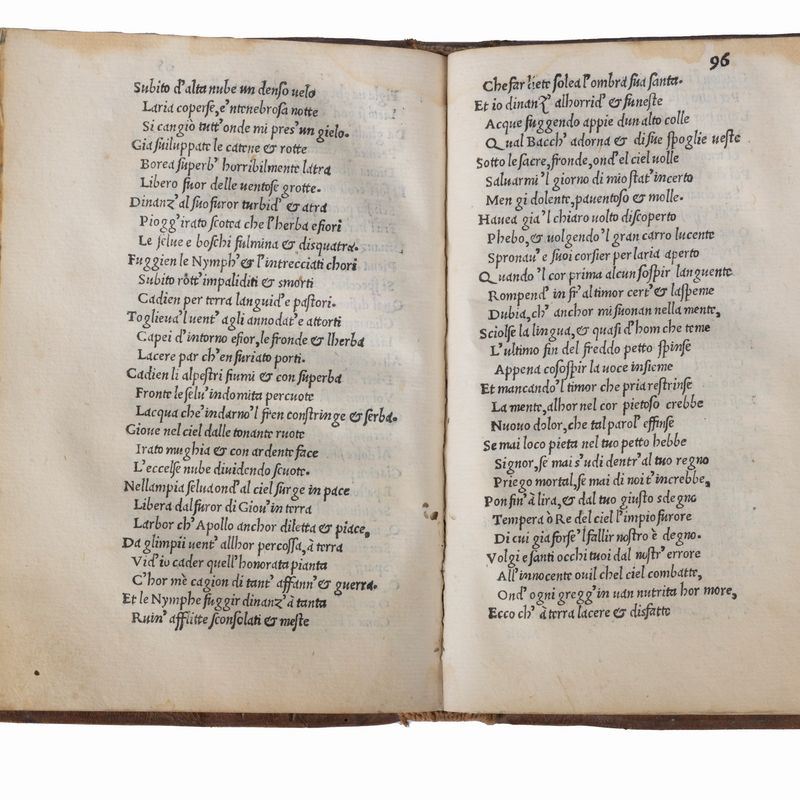 Subito d'alta nube un denso uelo
Laria coperse, e'ntenebrosa notte
Si cangiò tutt'onde mi pres'un gielo.
Gia suiluppate le catene & rotte
Borea superb' horribilmente latra
Libero fuor delle uentose grotte.
Dinanz'al suo furor turbid' & atra
Piogg'irato scotea che l'herba e fiori
Le selue e boschi fulmina & disquatra.
Fuggien le Nymph' & l'intrecciati chori
Subito rott'impaliditi & smorti
Cadien per terra languid'e pastori.
Toglieua'l uent' agli annodat'e attorti
Capei d'intorno e fior, le fronde & lherba
Lacere par ch'en furiato porti.
Cadien li alpestri fiumi & con superba
Fronte le selu'indomita percuote
Lacqua che'indarno'l fren constringe & serba.
Gioue nel ciel dalle tonante ruote
Irato mughia & con ardente face
L'eccelse nube diuidendo scuote.
Nellampia selua ond'al ciel surge in pace
Libera dal furor di Giou'in terra
Larbor ch'Apollo anchor diletta & piace,
Da glimpii uent' allhor percossa, à terra
Vid'io cader quell'honorata pianta
C'hor m'è cagion di tant' affann' & guerra.
Et le Nymphe fuggir dinanz'à tanta
Ruin' afflitte sconsolati & meste
96
Che far liete solea l'ombra sua santa.
Et io dinanz' alhorrid' & funeste
Acque fuggendo appie dun alto colle
Qual Bacch' adorna & di sue spoglie ueste
Sotto le sacre, fronde, ond'el ciel uolle
Saluarmi'l giorno di mio stat'incerto
Men gi dolente, pauentoso & molle.
Hauea gia'l chiaro uolto discoperto
Phebo, & uolgendo'l gran carro lucente
Spronau'e suoi corsier per laria aperto
Quando'l cor prima alcun sospir languente
Rompend' in fr'al timor cert' & laspeme
Dubia, ch' anchor mi suonan nella mente,
Sciolse la lingua, & quasi d'hom che teme
L'ultimo fin del freddo petto spinse
Appena co sospir la uoce insieme
Et mancando'l timor che pria restrinse
La mente, alhor nel cor pietoso crebbe
Nuouo dolor, che tal parol' effinse
Se mai loco pieta nel tuo petto hebbe
Signor, se mai s'udi dentr'al tuo regno
Priego mortal, se mai di noi t'increbbe,
Pon fin'à lira, & dal tuo giusto sdegno
Tempera ò Re del ciel l'impio furore
Di cui gia forse'l fallir nostro è degno.
Volgi e santi occhi tuoi dal nostr' errore
All'innocente ouil chel ciel combatte,
Ond' ogni gregg'in uan nutrita hor more,
Ecco ch' à terra lacere & disfatte